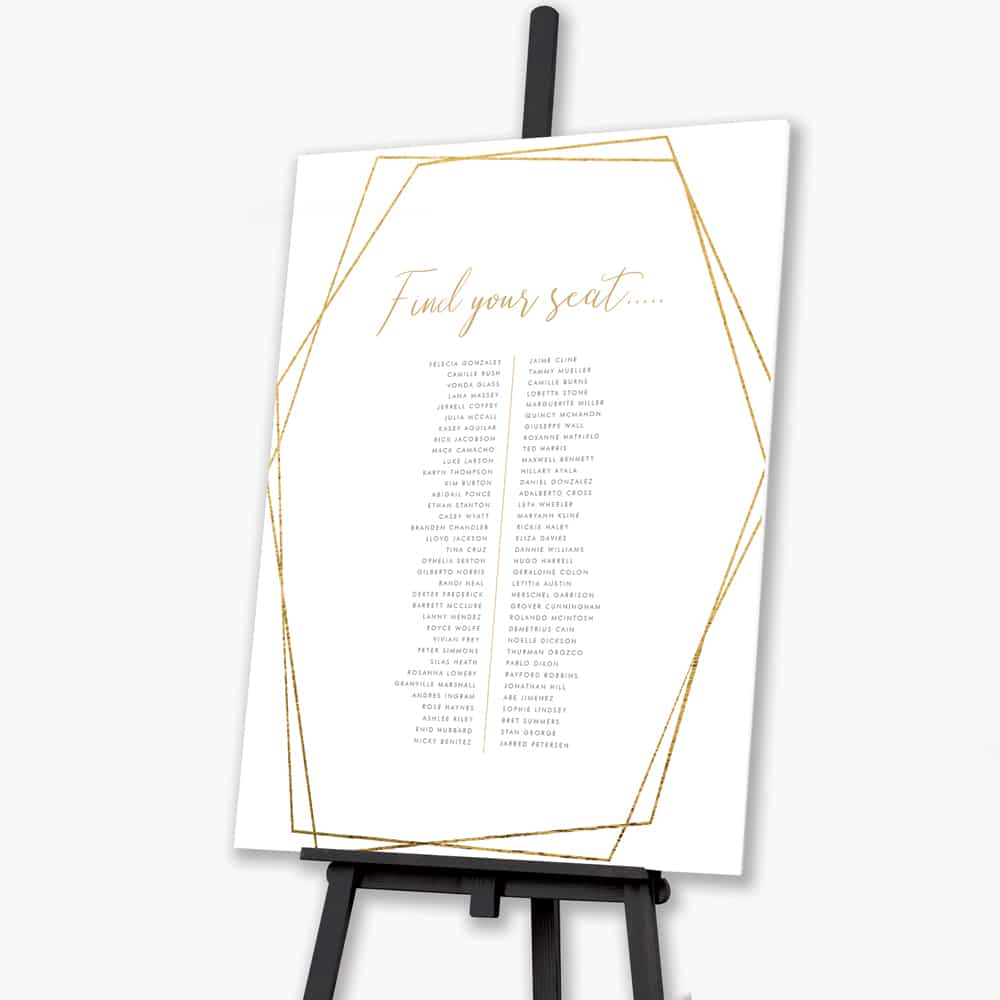 Find your seat.....
FELECIA GONZALES
CAMILLE RUSH
VONDA GLASS
LANA MASSEY
JERRELL COFFEY
JULIA MCCALL
KASEY AGUILAR
RICK JACOBSON
MACK CAMACHO
LUKE LARSON
KARYN THOMPSON
KIM BURTON
ABIGAIL PONCE
ETHAN STANTON
CASEY WYATT
BRANDEN CHANDLER
LLOYD JACKSON
TINA CRUZ
OPHELIA SEXTON
GILBERTO NORRIS
RANDI NEAL
DEXTER FREDERICK
BARRETT MCCLURE
LANNY MENDEZ
ROYCE WOLFE
VIVIAN FREY
PETER SIMMONS
SILAS HEATH
ROSANNA LOWERY
GRANVILLE MARSHALL
ANDRES INGRAM
ROSE HAYNES
ASHLEE RILEY
ENID HUBBARD
NICKY BENITEZ
JAIME CLINE
TAMMY MUELLER
CAMILLE BURNS
LORETTA STONE
MARGUERITE MILLER
QUINCY MCMAHON
GIUSEPPE WALL
ROXANNE HATFIELD
TED HARRIS
MAXWELL BENNETT
HILLARY AYALA
DANIEL GONZALEZ
ADALBERTO CROSS
LETA WHEELER
MARYANN KLINE
RICKIE HALEY
ELIZA DAVIES
DANNIE WILLIAMS
HUGO HARRELL
GERALDINE COLON
LETITIA AUSTIN
HERSCHEL GARRISON
GROVER CUNNINGHAM
ROLANDO MCINTOSH
DEMETRIUS CAIN
NOELLE DICKSON
THURMAN OROZCO
PABLO DIXON
RAYFORD ROBBINS
JONATHAN HILL
ABE JIMENEZ
SOPHIE LINDSEY
BRET SUMMERS
STAN GEORGE
JARRED PETERSEN